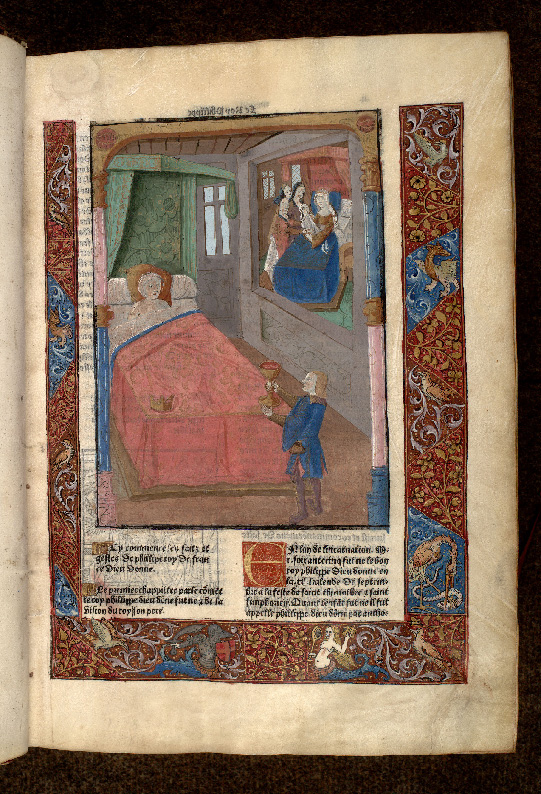 Le Roy Philippe
Cy commence les faitz et
gestes de philippe roy de fran
ce Dieu donne.
Le premier chappitre parle comēt
le roy philippe dieu dōne fut ne / & de la
vision du roy son pere.
EN lan de lincarnation. M.
c. soixante cinq fut ne le bon
roy philippe Dieu donne en
la xi. kalende de septem
bre a la feste de saint thimothee & saint
simphorien. Quant lenfāt fut ne il fut
appelle philippe dieu donne